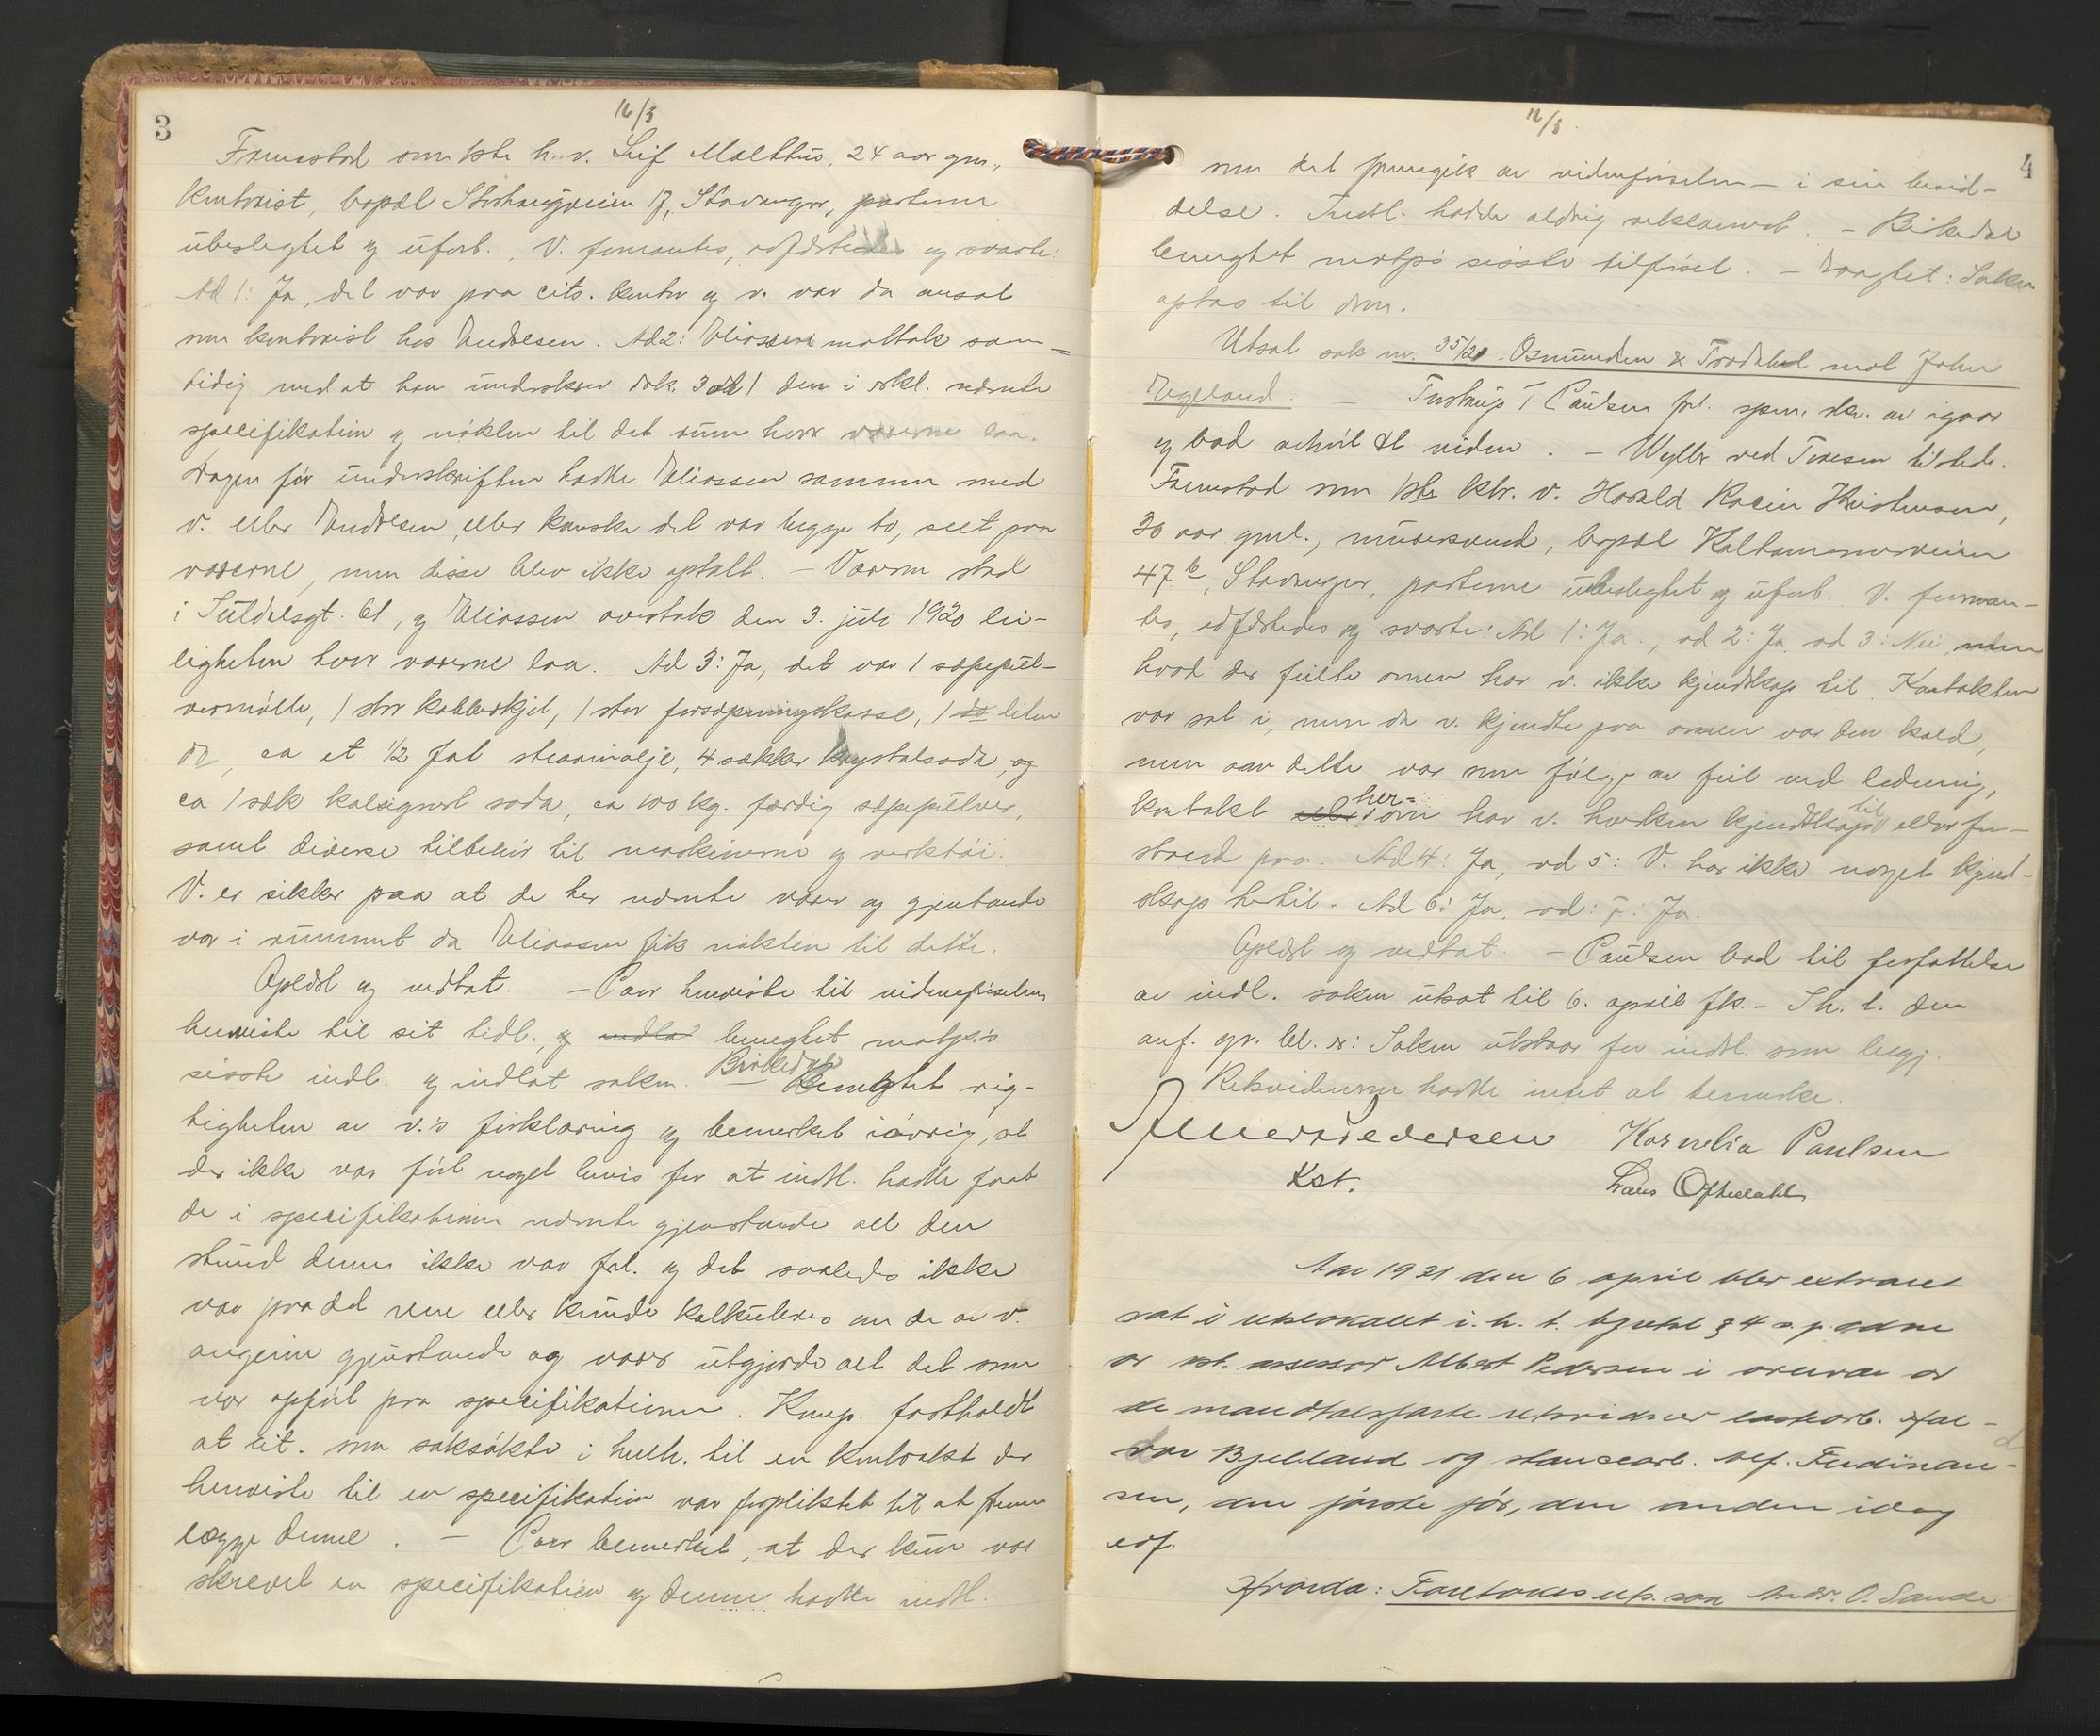 3
16/3
Fremstod som 1ste h.v. Leif Malthus, 24 aar gm.,
kontorist, bopæl Storhaugveien 17, Stavanger, parterne
ubeslegtet og uforb. V. formantes, edfæstedes og svarte:
Ad 1: Ja, det var paa cits. kontor og v. var da ansat
som kontorist hos Endresen. Ad 2: Eliassen mottok sam-
tidig med at han underskrev dok. 3 ad 1 den i skl. nævnte
specifikation og nøklen til det rum hvor varerne laa.
Dagen før underskriften hadde Eliassen sammen med
v. eller Endresen, eller kanske det var begge to, seet paa
varerne, men disse blev ikke optalt. – Varerne stod
i Suldalsgt. 61, og Eliassen overtok den 3. juli 1920 lei-
ligheten hvor varerne laa. Ad 3: Ja, det var 1 sæpepul-
vermølle, 1 stor kobberkjel, 1 stor forsæpningskasse, 1 do liten
do, ca et 1/2 fat stearinolje, 4 sækker krystalsoda, og
ca 1 sæk kalsinert soda, ca 100 kg. færdig sæpepulver,
samt diverse tilbehør til maskinerne og verktøi.
V. er sikker paa at de her nævnte varer og gjenstande
var i rummet da Eliassen fik nøklen til dette.
Oplæst og vedtat. – Carr henviste til vidneførselen
henviste til sit tidl., og indlot benegtet motp.s
sisste indl. og indlot saken. – Birkedal benegtet rig-
tigheten av v.'s forklaring og bemerket iøvrig, at
der ikke var ført noget bevis for at indst. hadde faat
de i specifikationen nævnte gjenstande all den
stund denne ikke var frl. og det saaledes ikke
var paa det rene eller kunde kalkuleres om de av v.
angivne gjenstande og varer utgjorde alt det som
var opført paa specifikationen. Komp. fastholdt
at cit. som saksøkte i henh. til en kontrakt der
henviste til en specifikation var forpliktet til at frem
lægge denne. – Carr bemerket, at der kun var
skrevet en specifikation og denne hadde indst.
4
16/3
som det fremgik av vidneførselen – i sin besid-
delse. Indst. hadde aldrig reklamert. – Birkedal
benegtet motp's sisste tilførsel. – Dragtet: Saken
optas til dom.
Utsat sak nr. 35/21 Osmundsen & Tradsted mot John
Egeland. – Tastrup f Paulsen frl. spm. skr. av igaar
og bad avhørt et vidne. – Wyller ved Toresen tilstede.
Fremstod som 1ste ktr. v. Harald Racin Kristensen,
30 aar gml., murersvend, bopæl Kalhammerveien
47 b, Stavanger, parterne ubeslegtet og uforb. V. forman-
tes, edfæstedes og svarte: Ad 1: Ja, ad 2: Ja ad 3: Nei, men
hvad der feilte ovnen har v. ikke kjendskap til. Kontakten
var sat i, men da v. kjendte paa ovnen var den kold,
men om dette var som følge av feil ved ledning,
kontakt eller her- om har v. hverken kjendskap til eller for-
stand paa. Ad 4: Ja, ad 5: V. har ikke noget kjend-
skap hertil. Ad 6: Ja, ad: 7: Ja.
Oplæst og vedtat. – Paulsen bad til forfattelse
av indl. saken utsat til 6. april fk. – I h. t. den
anf. gr. bl. s: Saken utstaar for indst. som begj.
Retsvidnerne hadde intet at bemerke.
Albert Pedersen Kornelia Paulsen
Kst. Lars Oftedahl
Aar 1921 den 6 april blev extraret
sat i retslokalet i. h. t. bynets § 4 a. p. adm
av kst. assessor Albert Pedersen i overvær av
de mandtalsførte retsvidner losearb. Hal-
var Bjelland og stansearb. Alf. Ferdinand-
sen, den første før, den anden idag
edf.
Hvorda: Foretokes utp. sak Andr. O. Sande